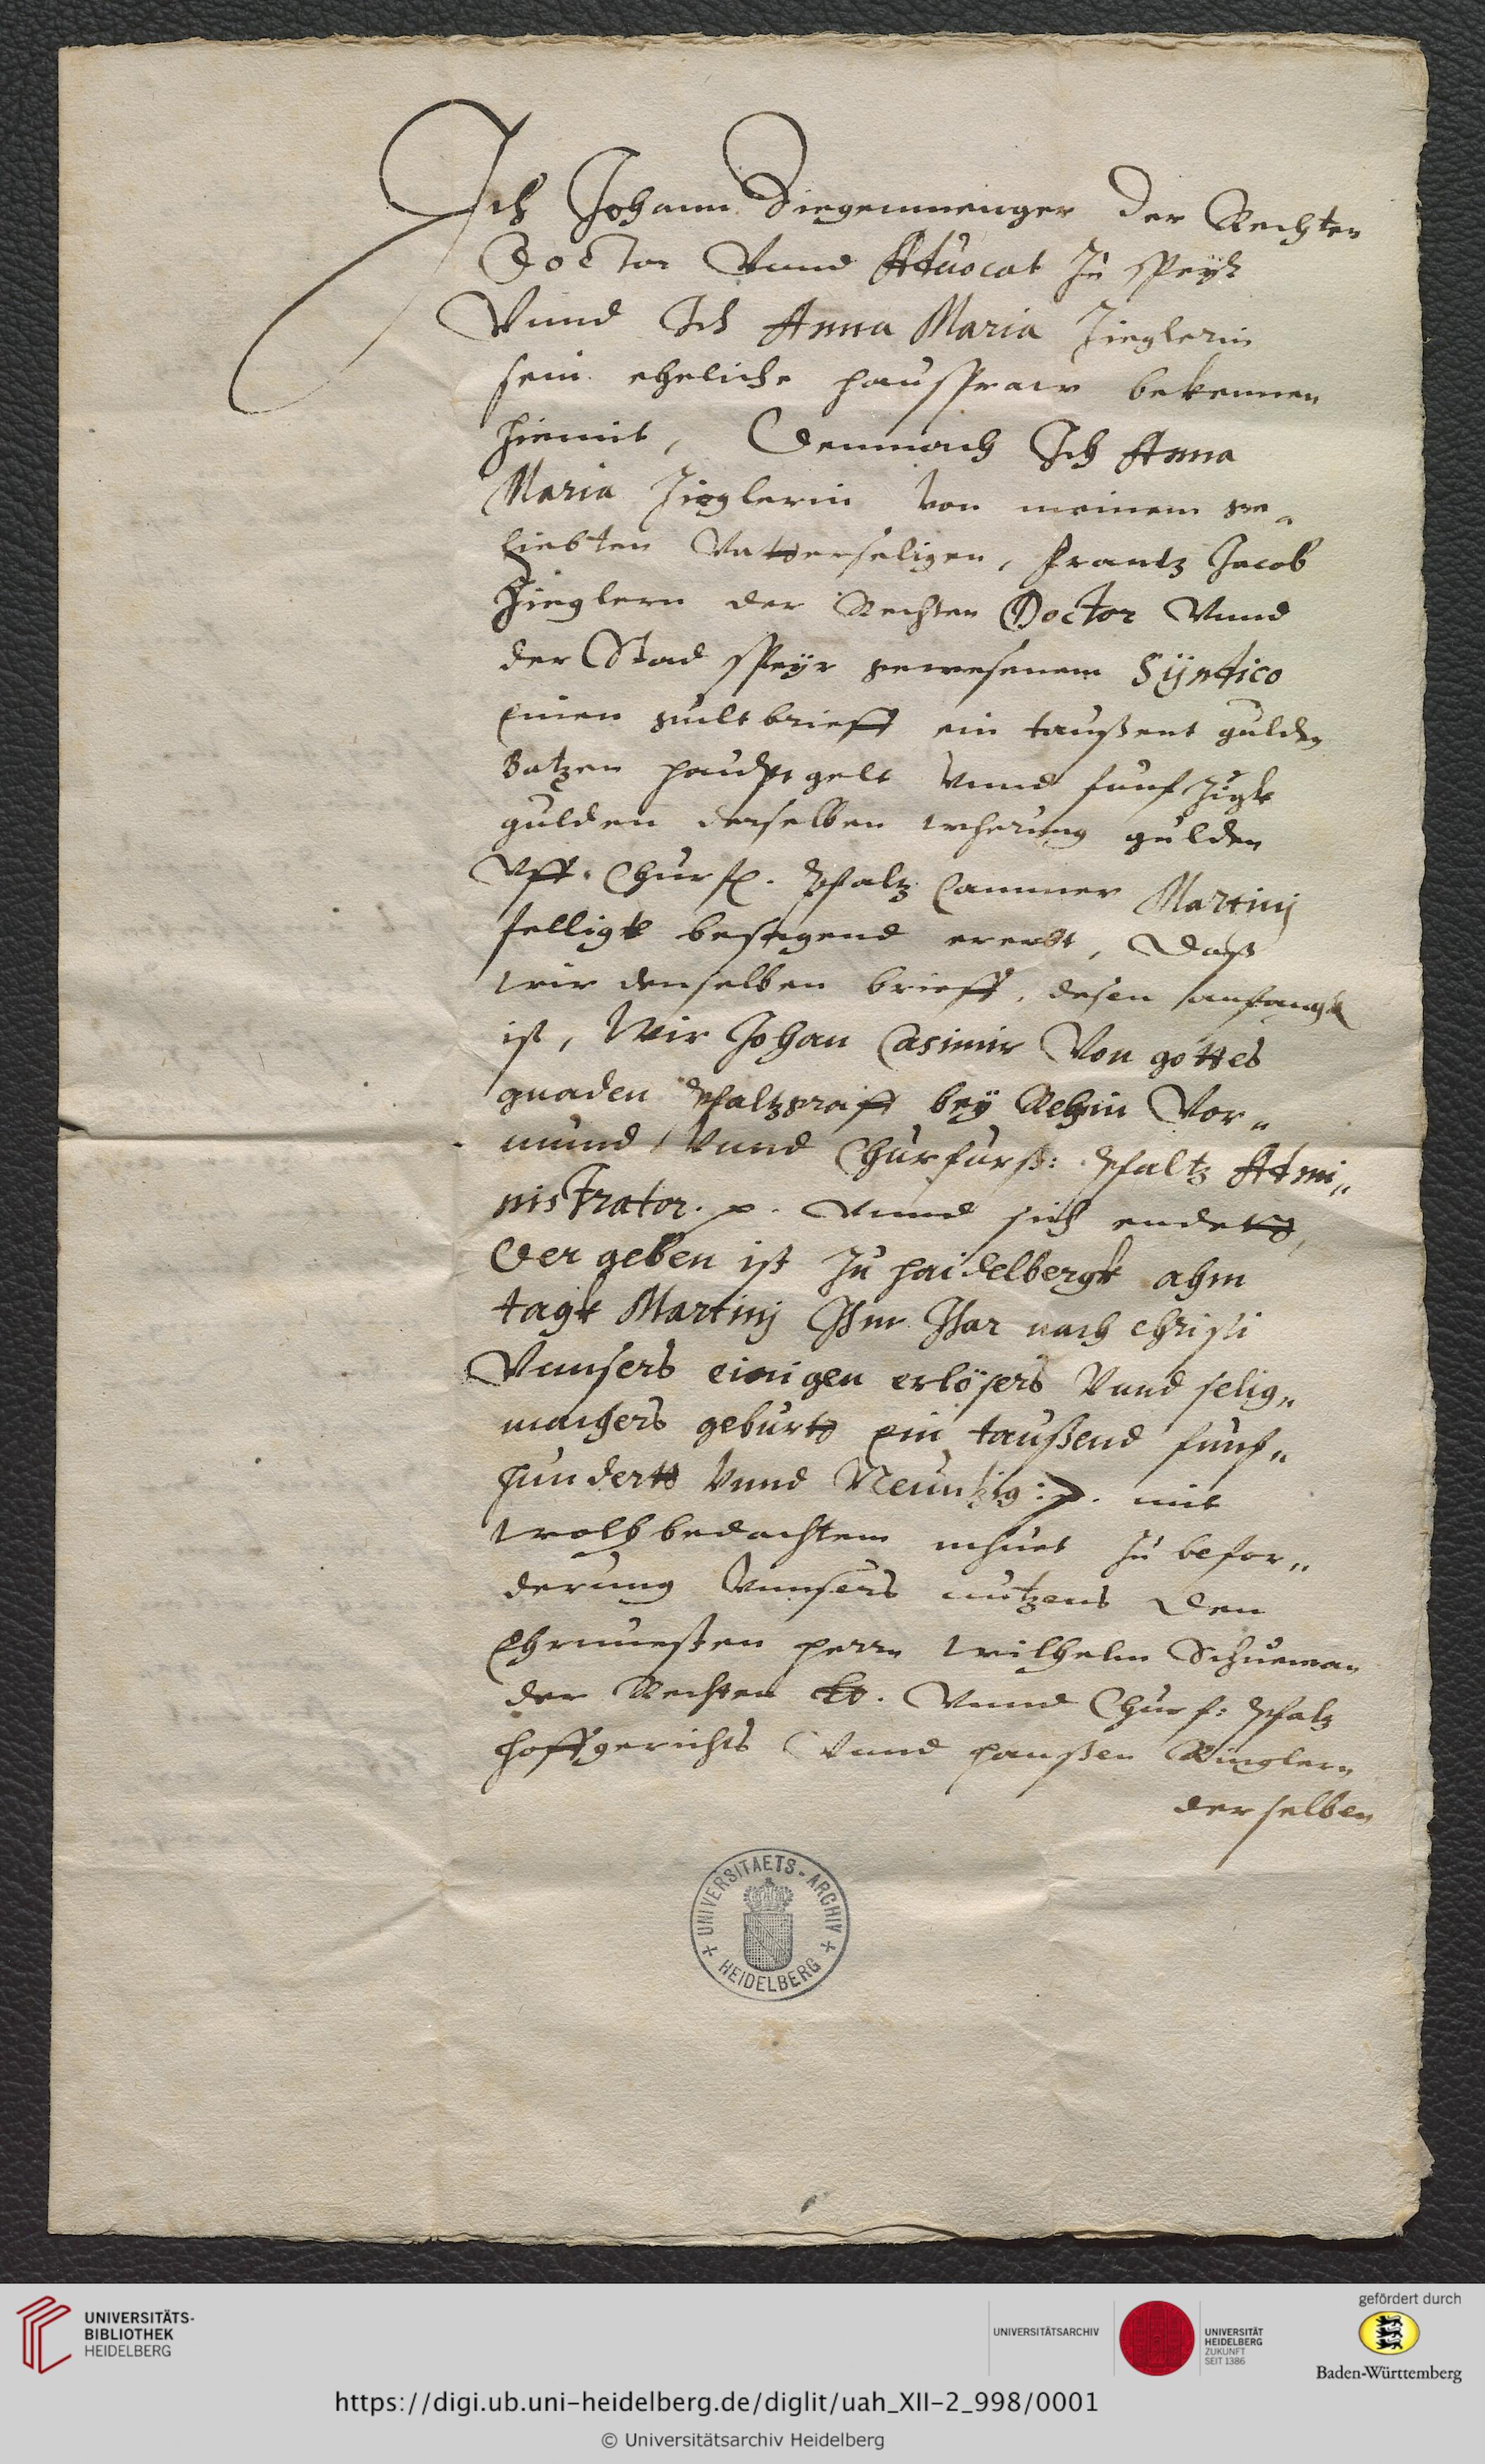 Ich Johann Diegenmenger der Rechten
Doctor Vnnd Aduocat zu speyr
Vnnd Ich Anna Maria Zieglerin
sein eheliche haussfraw bekennen
hiemit, Demnach Ich Anna
Maria Zieglerin von meinem ge„
liebten Vatterseligen, Frantz Jacob
Zieglern der Rechten Doctor Vnnd
der Stad speyr gewesenem Sÿndico
einen gultbrieff ein taußent gulden
Batzen hauptgelt vnnd funfzigk
gulden derselben wherung gulden
Vff Churf. Pfaltz Cammer Martinj
felligk besagend ererbt, Daß
wir denselben brieff, desen anfangk
ist, Wir Johan Casimir Von gottes
gnaden Pfaltzgraff beÿ Rehin Vor„
mund Vnnd Churfurst: Pfaltz Admi„
nistrator. p. Vnnd sich endett,
Der geben ist zu haidelbergk ahm
tagk Martinj Ihm Ihar nach christi
Vnnsers einigen erlösers Vnnd selig„
machers geburtt Ein taußend funf„
hundertt Vnnd Neuntzig: p. mit
wolbedachtem mhuet zu befor„
derung Vnnsers nutzens Den
Ehrnuesten herrn Wilhelm Schueman
der Rechten Vnnd Churf: Pfaltz
hoffgerichts Vnnd hanßen Ringlern
derselben
UNIVERSITAETS-ARCHIV
HEIDELBERG
UNIVERSITÄTS-
BIBLIOTHEK
HEIDELBERG
UNIVERSITÄTSARCHIV
UNIVERSITÄT
HEIDELBERG
ZUKUNFT
SEIT 1386
gefördert durch
Baden-Württemberg
https://digi.ub.uni-heidelberg.de/diglit/uah_XII-2_998/0001
© Universitätsarchiv Heidelberg